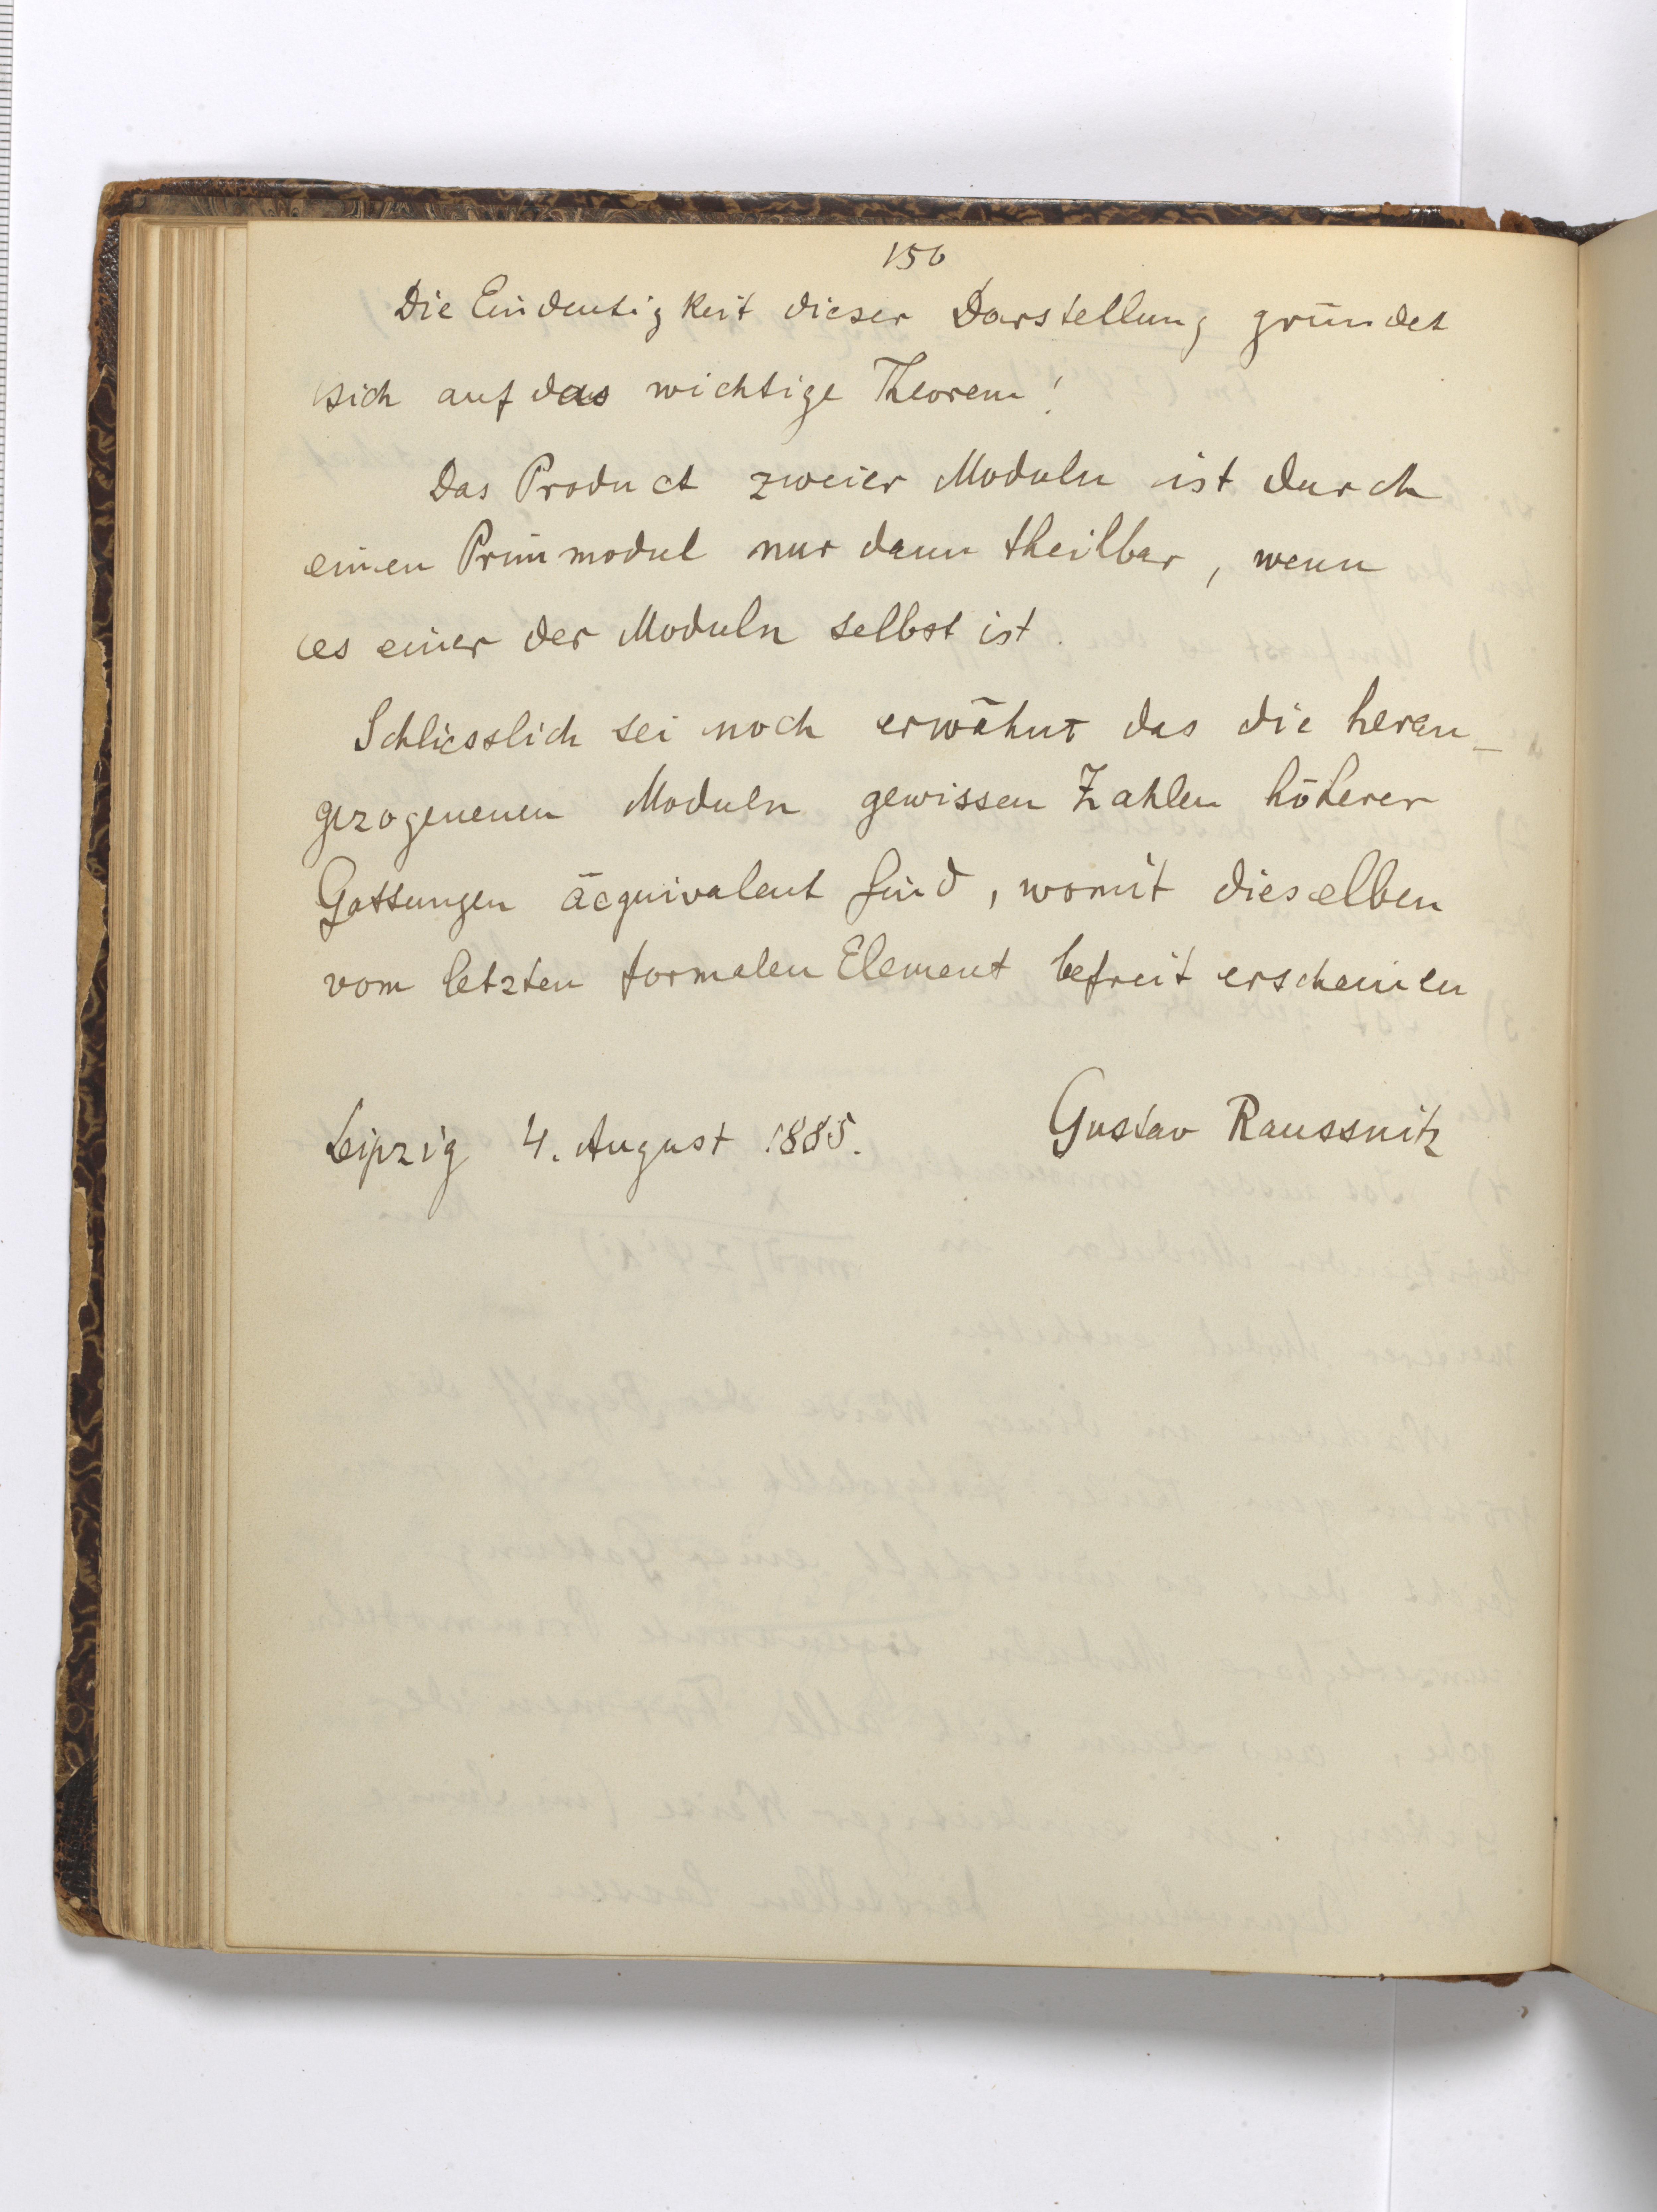 156
Die Eindeutigkeit dieser Darstellung gründet
sich auf das wichtige Theorem!
Das Product zweier Moduln ist durch
einen Primmodul nur dann theilbar, wenn
es einer der Moduln selbst ist.
Schliesslich sei noch erwähnt das die heran-
gezogenenen Moduln gewissen Zahlen höherer
Gattungen äcquivalent sind, womit dieselben
vom letzten formalen Element befreit erscheinen
Leipzig 4. August 1885. Gustav Raussnitz